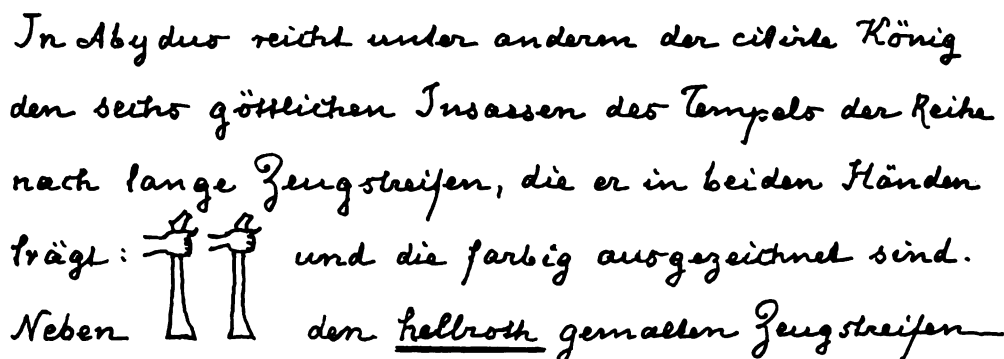 In Abydus reicht unter anderem der citirte König
den sechs göttlichen Insassen des Tempels der Reihe
nach lange Zeugstreifen, die er in beiden Händen
trägt: und die farbig ausgezeichnet sind.
Neben den hellroth gemalten Zeugstreifen